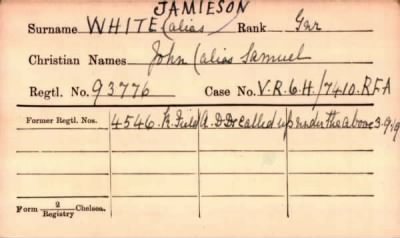 JAMIESON
Surname WHITE (alias) Rank Gnr
Christian Names John (alias Samuel
Regtl. No. 93776 Case No. V.R.6.H/7410.RFA
Former Regtl. Nos. 4546. R. Field A. called up under the above 3.9.19
Form 2 Registry Chelsea.